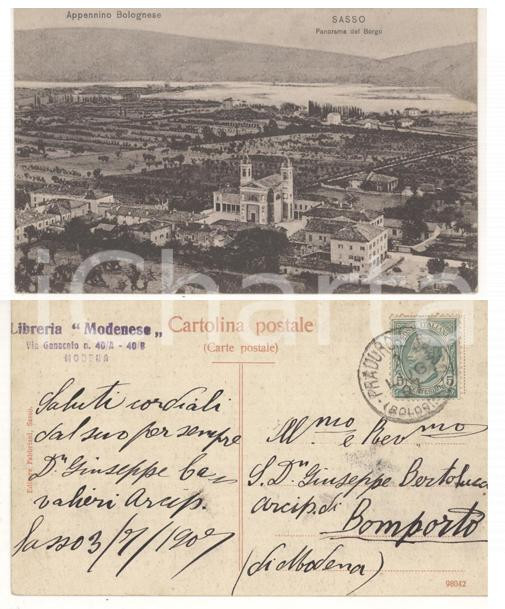 Appennino Bolognese
SASSO
Panorama del Borgo
iCharta
Libreria "Modenese"
Via Ganaceto n. 40/A - 40/B
MODENA
Cartolina postale
(Carte postale)
Saluti cordiali
dal suo per sempre
Dn Giuseppe Ca=
valieri Arcip.
Sasso 3/7/1907
Editore Pabbriani, Sasso.
PRADURO
(BOLOGN
5
All mo e Rev mo
S. Dn Giuseppe Bertolucci
arcip. di
Bomporto
(di Modena)
98042